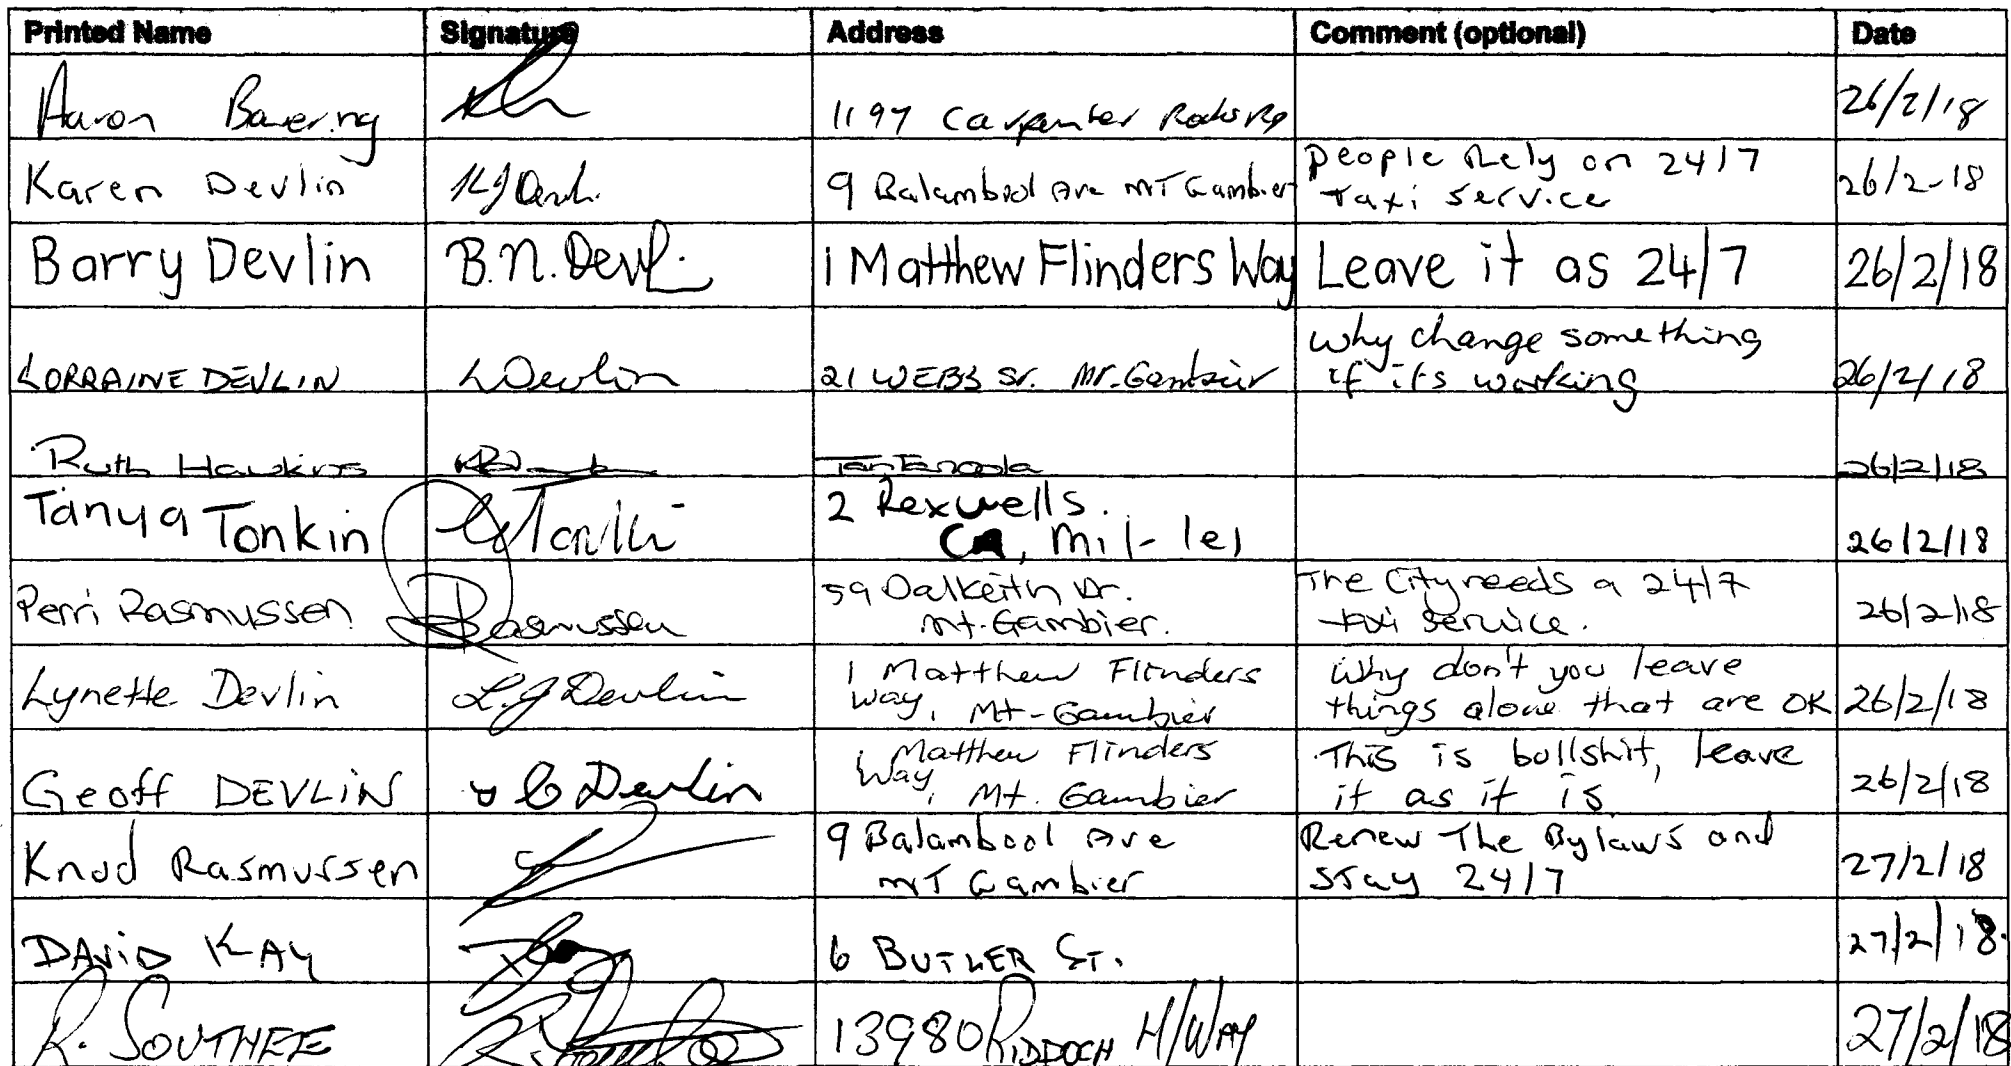 Printed Name Signature Address Comment (optional) Date
Aaron Bavering 1197 Carpenter Rocks Rd 26/2/18
Karen Devlin KJ Devl. 9 Balambool Ave MT Gambier People Rely on 24/7
Taxi Service 26/2-18
Barry Devlin B.N. Devl. 1 Matthew Flinders Way Leave it as 24/7 26/2/18
LORRAINE DEVLIN L Devlin 21 WEBB ST. MT. Gambier why change something
if its working 26/2/18
Ruth Hawkins Tantanoola 26/2/18
Tanya Tonkin 2 Rexwells.
Mil-lel 26/2/18
Perri Rasmussen Rasmussen 59 Dalkeith Dr.
Mt. Gambier. The City needs a 24/7
taxi service. 26/2/18
Lynette Devlin L.J Devlin 1 Matthew Flinders
Way, Mt-Gambier Why don't you leave
things alone that are OK 26/2/18
Geoff DEVLIN G Devlin 1 Matthew Flinders
Way, Mt. Gambier This is bollshit, leave
it as it is 26/2/18
Knud Rasmussen 9 Balambool Ave
MT Gambier Renew The Bylaws and
stay 24/7 27/2/18
DAViD KAY 6 BUTLER ST. 27/2/18.
R. SOUTHEE R. 13980 RIDDOCH H/WAY 27/2/18